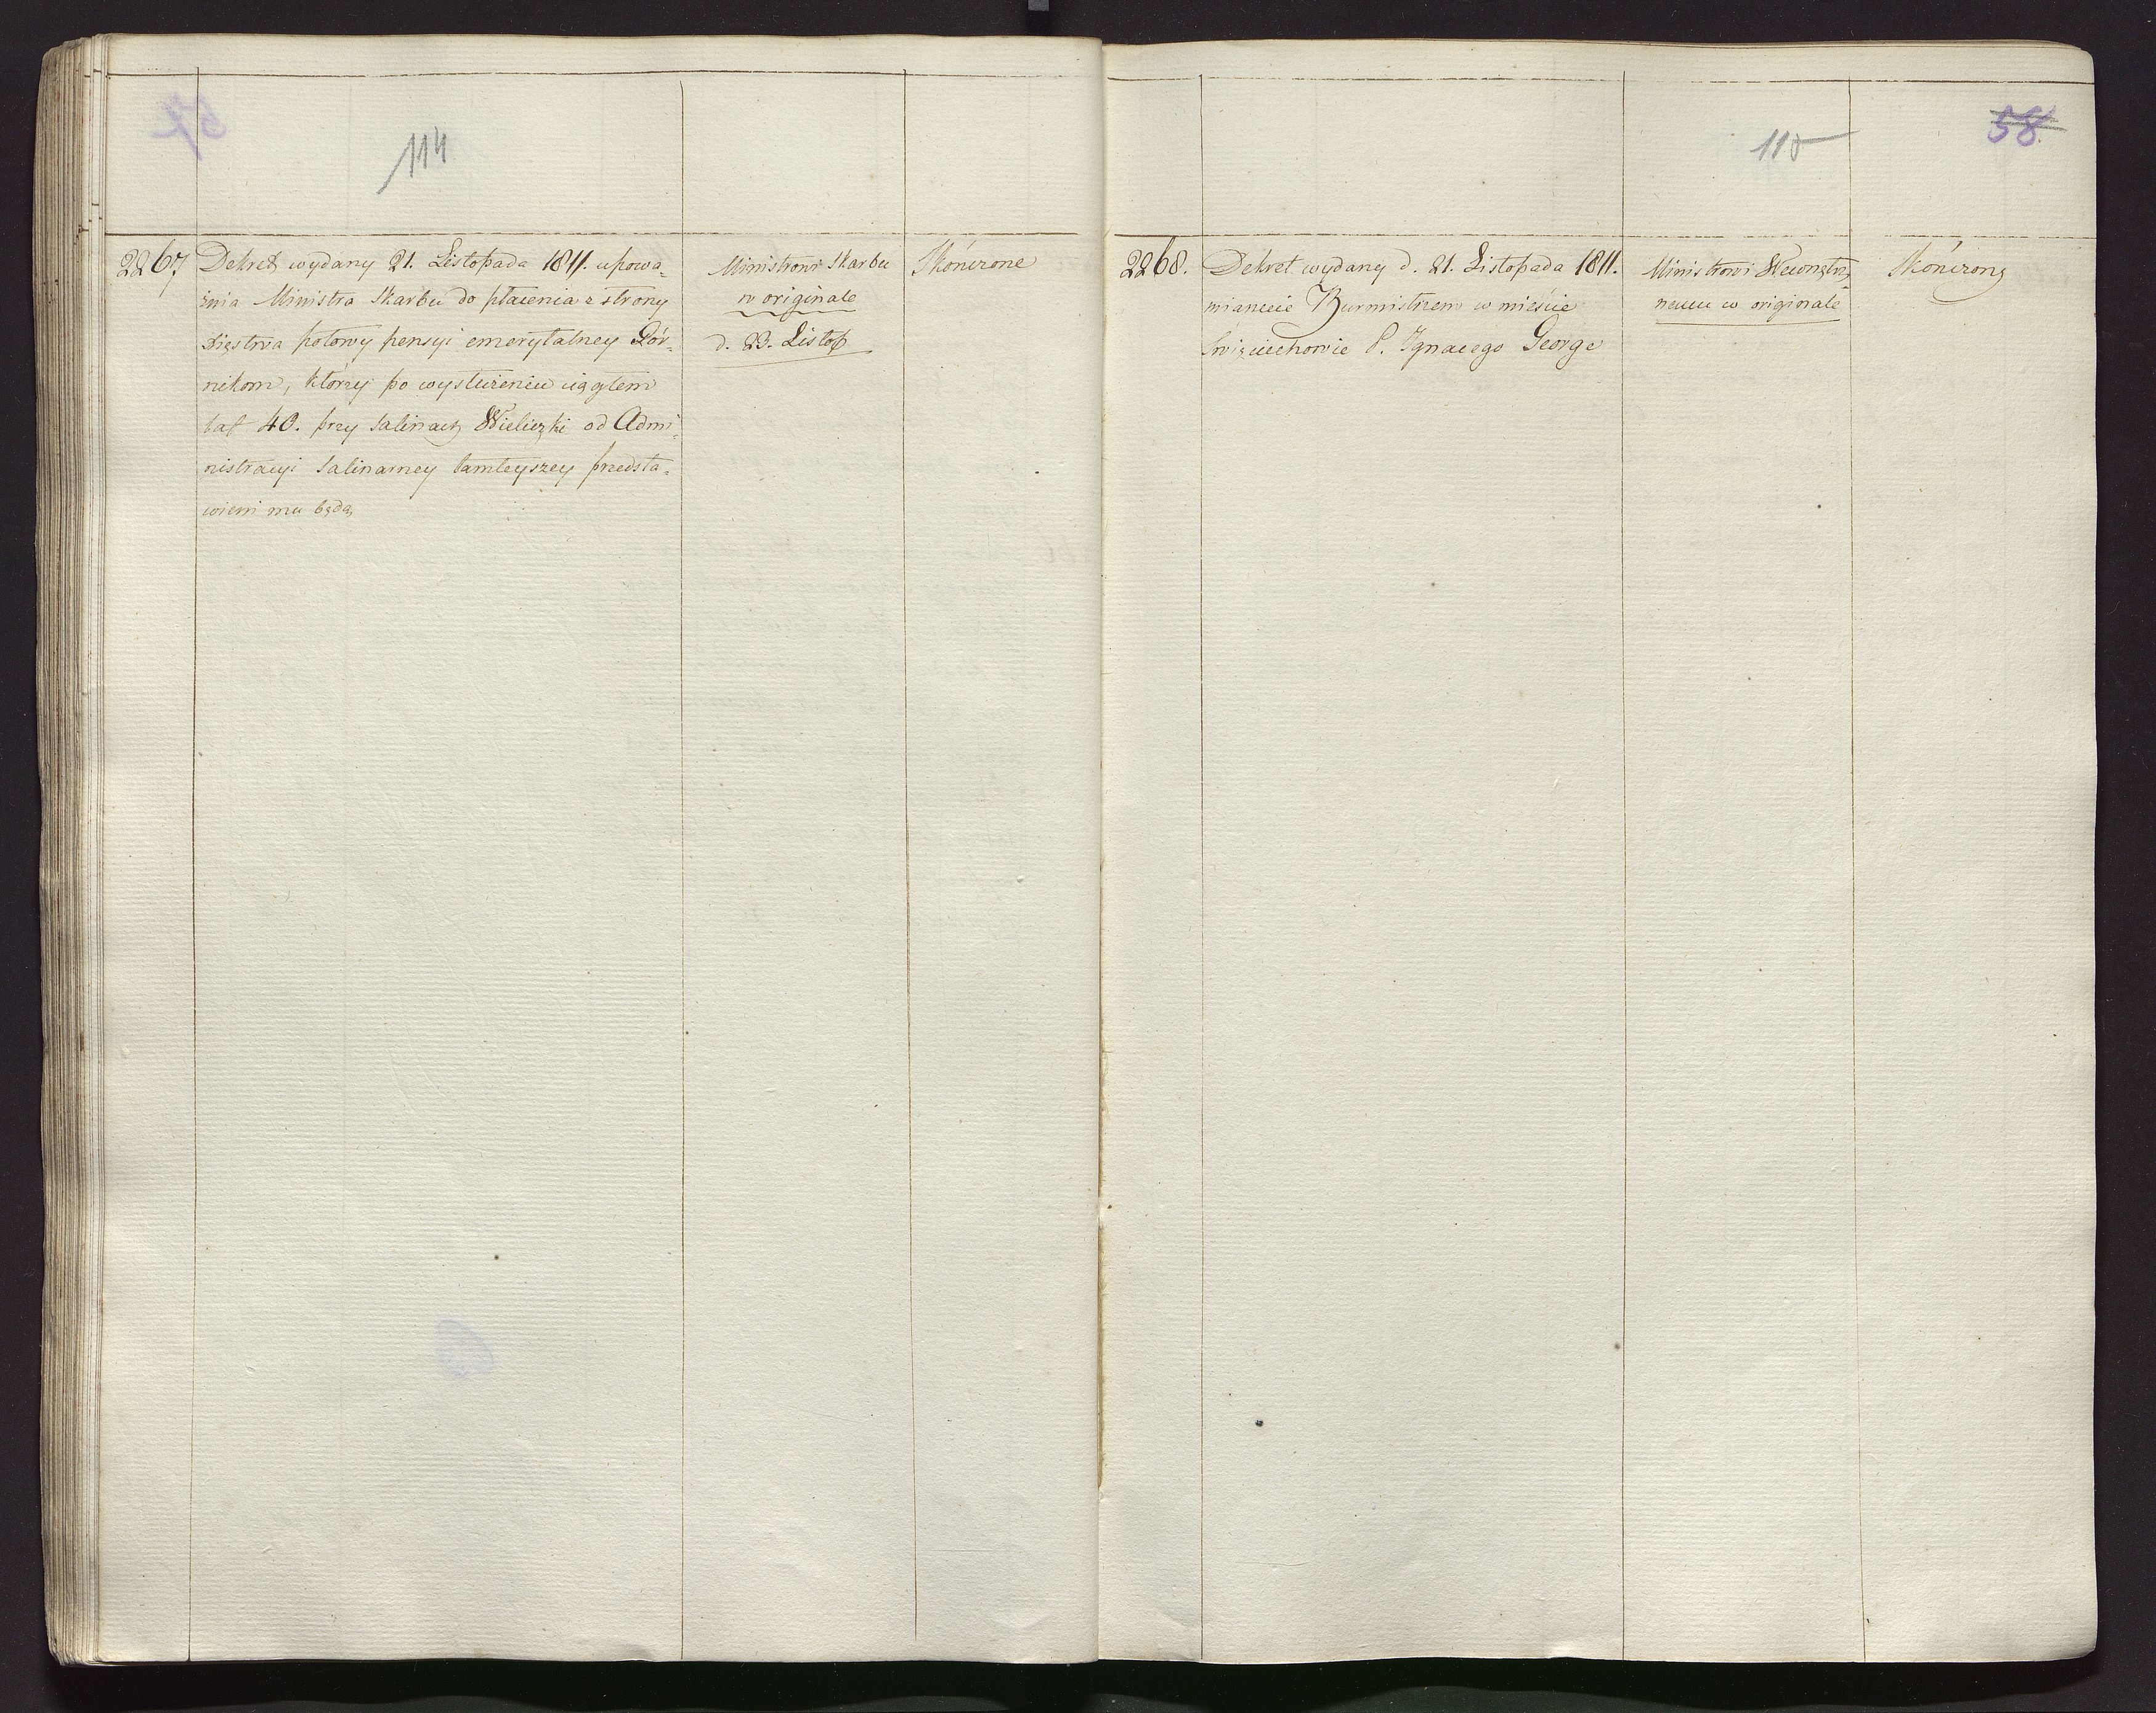 114
2267 Dekret wydany 21. Listopada 1811. upowa-
żnia Ministra Skarbu do płacenia z strony
Xięstwa połowy pensyi emerytalney Gór-
nikom, którzy po wysłużeniu ciągłem
lat 40. przy Salinach Wieliczki od Admi-
nistracyi Salinarney tamteyszey przedsta-
wieni mu będą
Ministrowi Skarbu
w originale
d. 23. Listop
Skończone
58
115
2268. Dekret wydany d. 21. Listopada 1811.
mianuie Burmistrzem w mieście
Święciechowie P. Ignacego George
Ministrowi Wewnętrz-
nemu w originale
Skończony